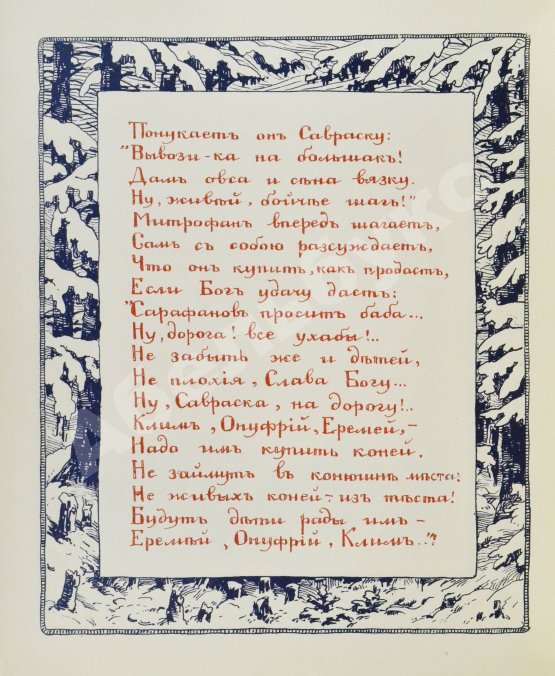 Понукаетъ онъ Савраску:
"Вывози-ка на большакъ!
Дамъ овса и сѣна вязку.
Ну, живѣй, бойчѣе шагъ!"
Митрофанъ впередъ шагаетъ,
Самъ съ собою разсуждаетъ,
Что онъ купитъ, какъ продастъ,
Если Богъ удачу дастъ:
"Сарафановъ проситъ баба...
Ну, дорога! все ухабы!..
Не забыть же и дѣтей,
Не плохія, Слава Богу...
Ну, Савраска, на дорогу!..
Климъ, Онуфрій, Еремей,-
Надо имъ купить коней.
Не займутъ въ конюшнѣ мѣста:
Не живыхъ коней-изъ тѣста!
Будутъ дѣти рады имъ-
Еремѣй, Онуфрій, Климъ.."?